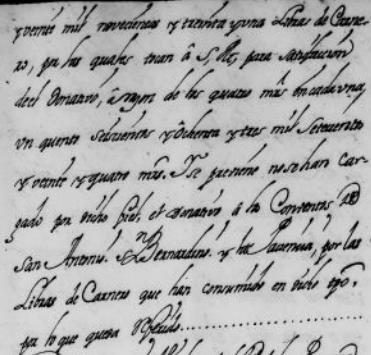 y veinte mil novecientas y treinta y una Libras de Carne-
ro, por las quales tocan â S. Mg. para satisfaccion
deel Donativo, â razon de los quatro mrs en cada una,
un quento seiscientos y ôchenta y tres mil Setecientos
y veinte y quatro mrs. Y se previene no se han Car-
gado por dicho fiel, el Donativo â los Conventos de
San Antonio. Sn Bernardino. y la por las
Libras de Carnero que han consumido en dicho tpo.
por lo que queda